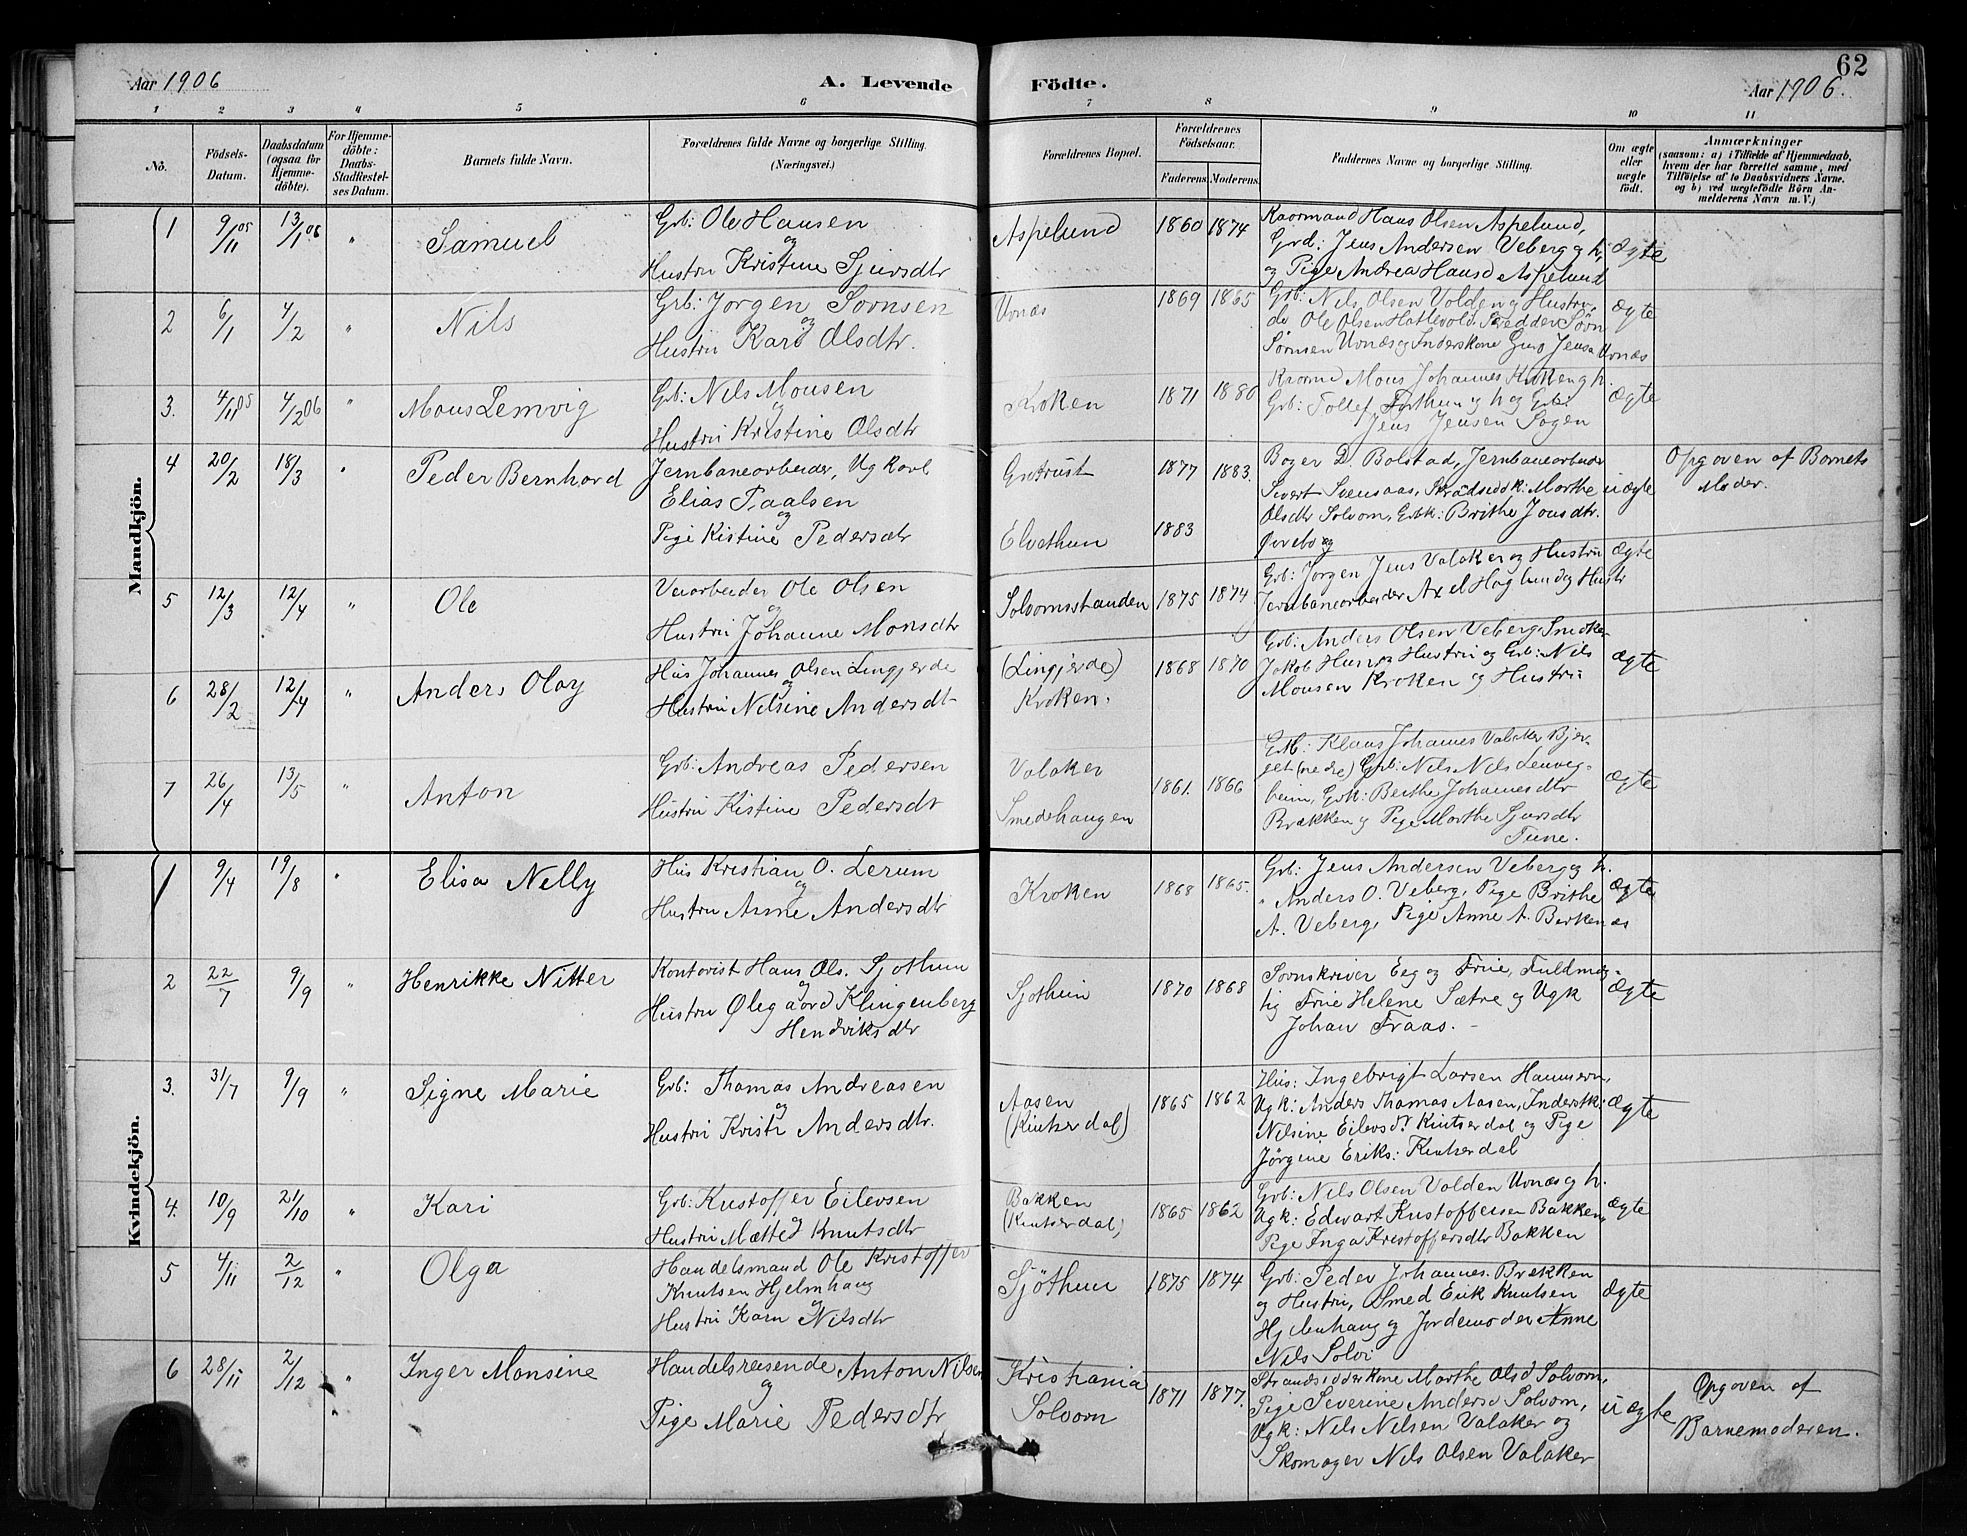 62
Aar 1906 A. Levende Födte. Aar 1906.
1 2 3 4 5 6 7 8 9 10 11
No.
Födsels-Datum.
Daabsdatum (ogsaa for Hjemme-döbte).
For Hjemme-döbte: Daabs-Stadfæstel-ses Datum.
Barnets fulde Navn.
Forældrenes fulde Navne og borgerlige Stilling.
(Næringsvei.)
Forældrenes Bopæl.
Forældrenes Födselsaar.
Faderens Moderens
Faddernes Navne og borgerlige Stilling.
Om ægte eller uægte födt.
Anmærkninger
(saasom: a) i Tilfælde af Hjemmedaab, hvem der har forrettet samme, med Tilföielse af to Daabsvidners Navne. og b) ved uægtefödte Börn An-melderens Navn m. V.)
Mandkjön.
1 9/11 05 13/1 06 " Samuel
Grb: Ole Hansen
og
Hustru Kristine Sjursdtr
Aspelund 1860 1874
Kaarmand Hans Olsen Aspelund,
Grd: Jens Andersen Veberg og h,
og Pige Andrea Hansd Aspelund
ægte
2 6/1 4/2 " Nils
Grb: Jørgen Sørnsen
og
Hustru Kari Olsdtr.
Urnæs 1869 1865
Grb: Nils Olsen Volden og Hustru,
do Ole Olsen Hattevold,
Sørnsen Urnæs og Inderskone Guro Jensd Urnæs
ægte
3. 4/11 05 4/2 06 " Mons Lemvig
Grb: Nils Monsen
og
Hustru Kristine Olsdtr
Kroken 1871 1880
Mons Johannes Kroken og h.
Grb: Tollef og h og Grb:
Jens Jensen Sogen
ægte
4 20/2 18/3 " Peder Bernhard
Jernbanearbeider, Ugkarl
Elias Paalsen
og
Pige Kistine Pedersdtr
Elvethun
1877 1883.
1883
Bøger D. Bolstad, Jernbanearbeider
Sivert Svensaas, Marthe
Olsdtr Solvorn, Grbk: Brithe Jonsdtr.
Øvrebø
uægte
Opgaven af Barnets
Moder.
5 12/3 12/4 " Ole
Veiarbeider Ole Olsen
og
Hustru Johanne Monsdtr
Solvornstranden 1875 1874
Grb: Jørgen Jens Valaker og Hustru
Jernbanearbeider Axel Haglund og Hustr
ægte
6 28/2 12/4 " Anders Olay
Hus Johannes Olsen Lingjerde
og
Hustru Nilsine Andersdt
(Lingjerde)
Kroken.
1868 1870
Grb: Anders Olsen Veberg, Snidke-
Jakob og Hustru og Grb: Nils
Monsen Kroken og Hustru
ægte
7 26/4 13/5 " Anton
Grb: Andreas Pedersen
Hustru Kistine Pedersdtr
Valaker
Smedehaugen
1861. 1866
Grb: Klaus Johannes Valaker Bjer-
get (nedre) Grb: Nils Nils
heim, Grk: Berthe Johannesdtr
Brækken og Pige Marthe Sjursdtr
Tune.
ægte
Kvindekjön.
1 9/4 19/8 " Elisa Nelly
Hus Kristian O. Lerum
og
Hustru Anne Andersdtr
Kroken 1868 1865.
Grb: Jens Andersen Veberg og h.
" Anders O. Veberg, Pige Brithe
A. Veberg, Pige Anne A. Berkenæs
ægte
2 22/7 9/9 " Henrikke Nitter
Kontorist Hans Ols. Sjøthun
og
Hustru Ølegaard Klingenberg
Hendriksdtr
Sjøthun 1870 1868
Sornskriver Eeg og Frue, Fuldmæg-
tig Frue Helene Sætre og Ugk
Johan Fraas.
ægte
3. 31/7 9/9 " Signe Marie
Grb: Thomas Andreasen
og
Hustru Kristi Andersdtr.
Aasen
(Kintserdal)
1865 1862
Hus: Ingebrigt Larsen Hammern,
Ugk: Anders Thomas Aasen, Inderstk:
Nilsine Eilevsdr Kintserdal og Pige
Jørgine Eriks: Kintserdal
ægte
4. 10/9 21/10 " Kari
Grb: Kristoffer Eilevsen
Hustru Mætte Knutsdtr
Bakken
(Kintserdal)
1865 1862
Grb: Nils Olsen Volden Urnæs og h.
Ugk: Edwart Kristoffersen Bakken,
Pige Inga Kristoffersdtr Bakken
ægte
5 4/11 2/12 " Olga
Handelsmand Ole Kristoffer
Knutsen Hjelmhaug
og
Hustru Karn Nilsdtr
Sjöthun 1875 1874
Grb: Peder Johannes. Brekken
og Hustru, Smed Erik Knutsen
Hjelmhaug og Jordemoder Anne
Nils Solvi
ægte
6 28/11 2/12 " Inger Monsine
Handelsreisende Anton Nilsen
og
Pige Marie Pedersdtr
Kristiania
Solvorn
1871 1877.
Strandsidderkone Marthe Olsd Solvorn,
Pige Severine Andersd Solvorn,
Ugk: Nils Nilsen Valaker og
Skomager Nils Olsen Valaker
uægte
Opgaven af
Barnemoderen.